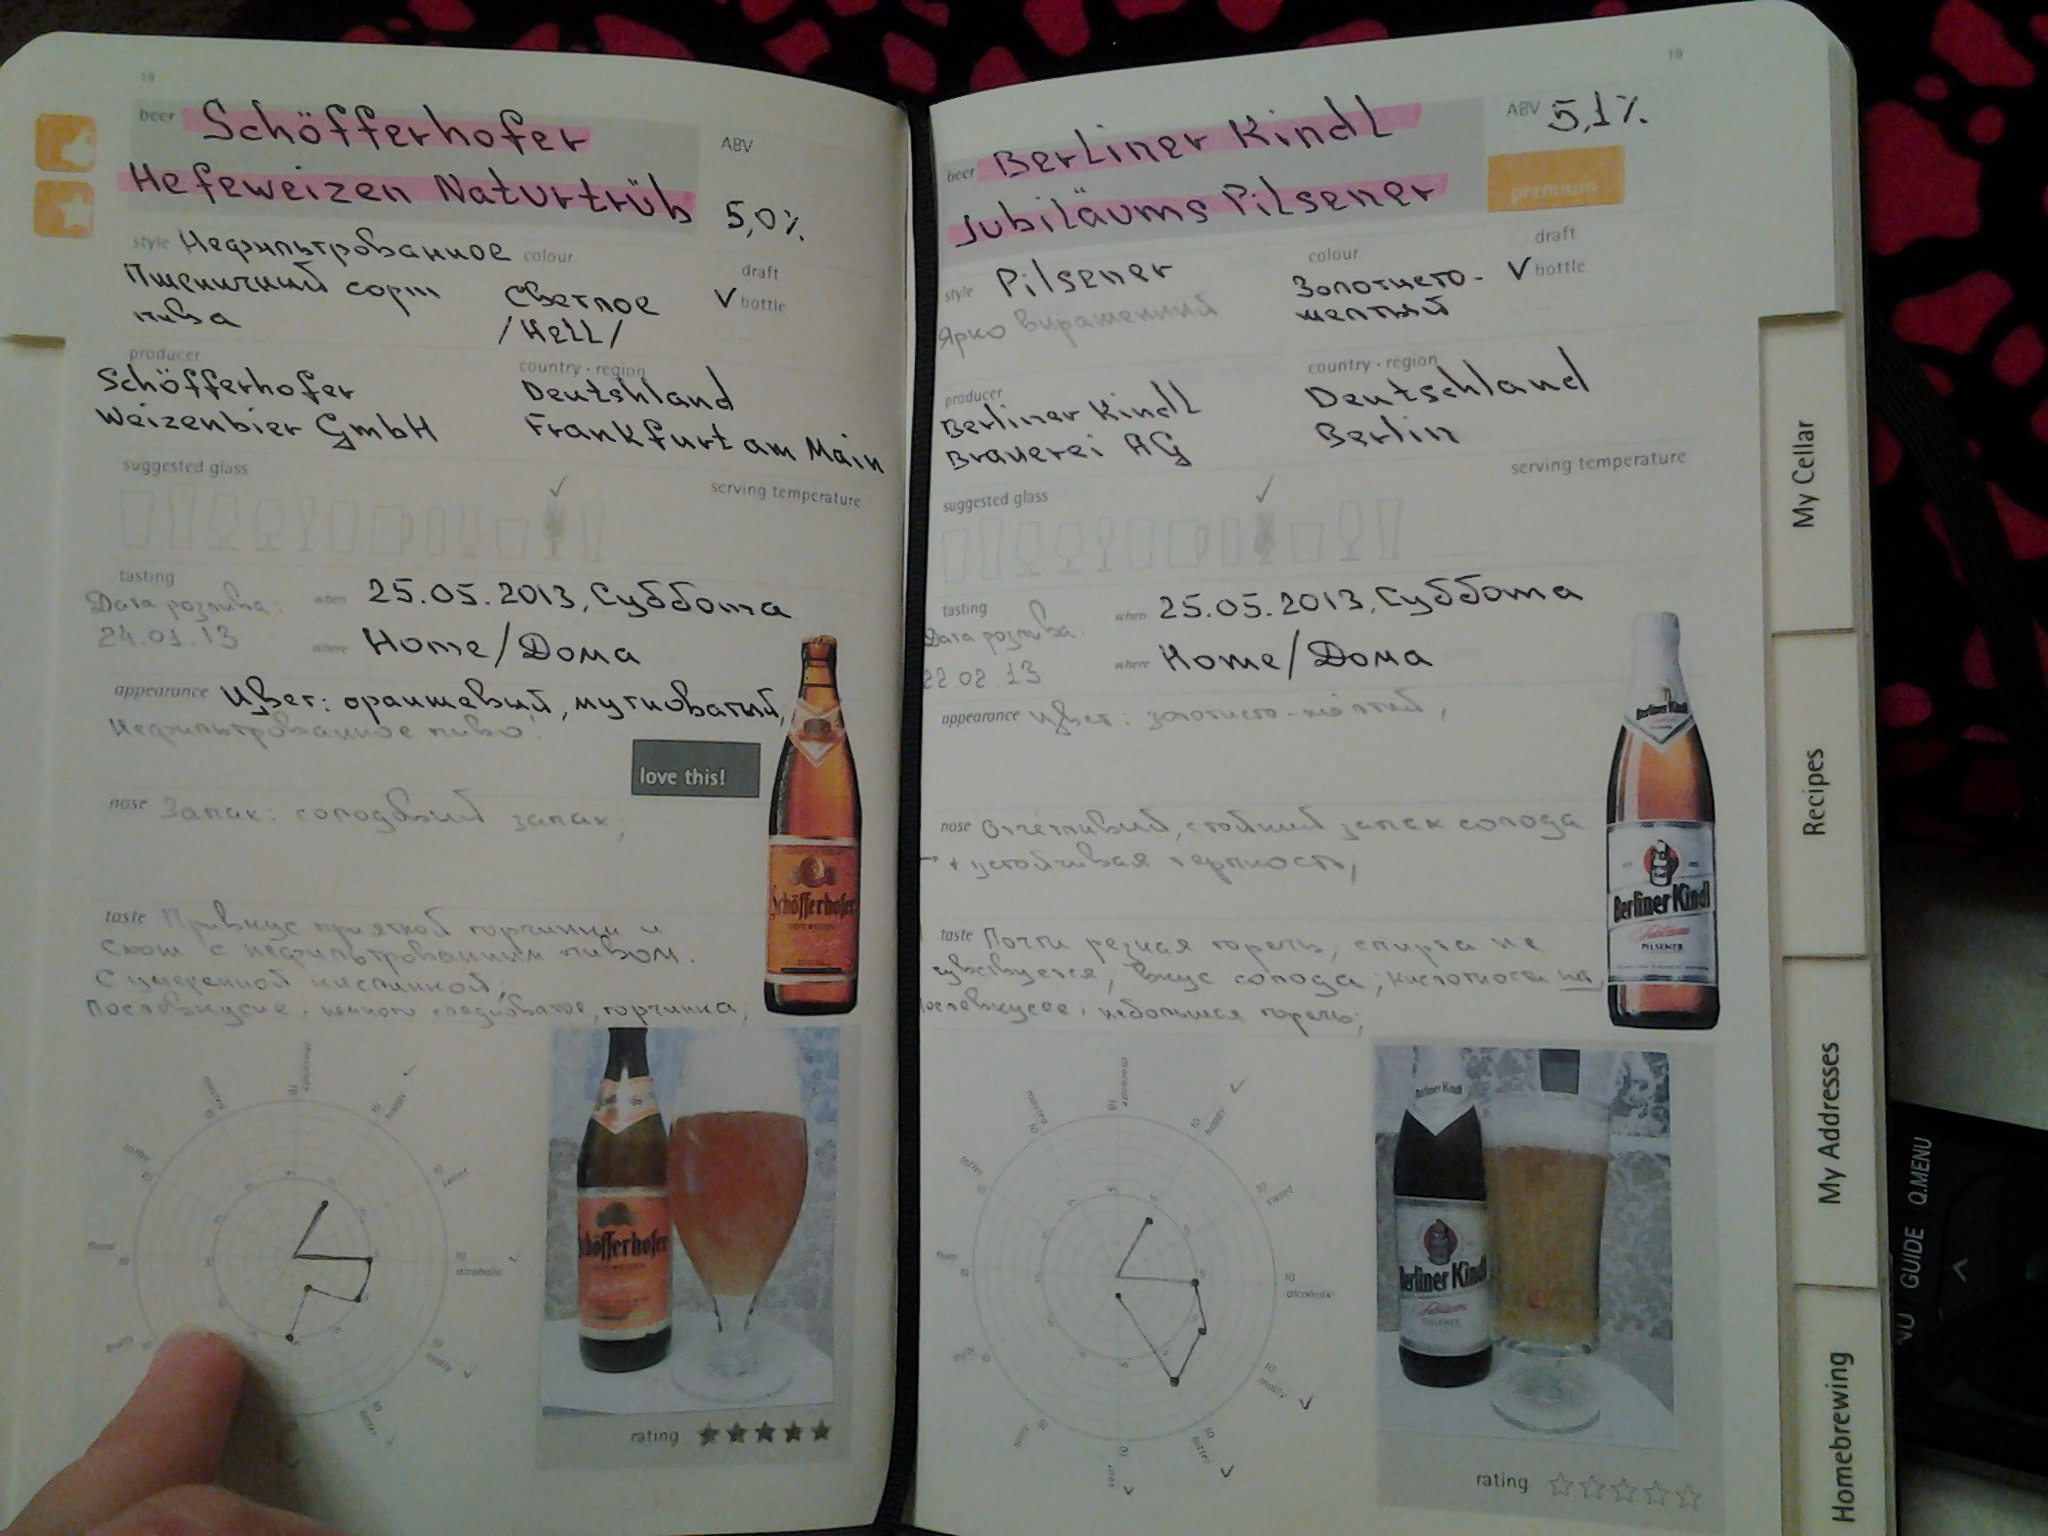 18
beer Schöfferhofer
Hefeweizen Naturtrüb
ABV
5,0%
style Нефильтрованное
Пшеничный сорт
пива
colour
Светлое
/Hell/
draft
√ bottle
producer
Schöfferhofer
Weizenbier GmbH
country - region
Deutshland
Frankfurt am Main
suggested glass
serving temperature
tasting
Дата розлива:
24.01.13
when 25.05.2013, Суббота
where Home/Дома
appearance Цвет: оранжевый, мутноватый,
Нефильтрованное пиво!
love this!
nose Запах: солодовый запах,
taste Привкус приятной горчинки и
схож с нефильтрованным пивом.
С умеренной кислинкой;
Послевкусие: немного сладковатое, горчинка,
Schöfferhofer
Schöfferhofer
10
happy
10
sweet
10
alcoholic
10
bitter
rating ★★★★★
19
beer Berliner Kindl
Jubiläums Pilsener
ABV 5,1%
premium
style Pilsener
Ярко выраженный
colour
Золотисто-
желтый
draft
√ bottle
producer
Berliner Kindl
Brauerei AG
country - region
Deutschland
Berlin
suggested glass
serving temperature
tasting
Дата розлива:
22 02 13
when 25.05.2013, Суббота
where Home/Дома
appearance Цвет: золотисто-жёлтый,
nose Отчётливый, стойкий запах солода
+ устойчивая терпкость,
taste Почти резкая горечь, спирта не
чувствуется, вкус солода, кислотности нет,
послевкусие: небольшая горечь;
Berliner Kindl
Berliner Kindl
Jubiläums
PILSENER
Berliner Kindl
Berliner Kindl
10
happy
10
sweet
10
alcoholic
10
malty
10
bitter
10
sour
rating ☆☆☆☆☆
My Cellar
Recipes
My Addresses
Homebrewing
GUIDE Q.MENU